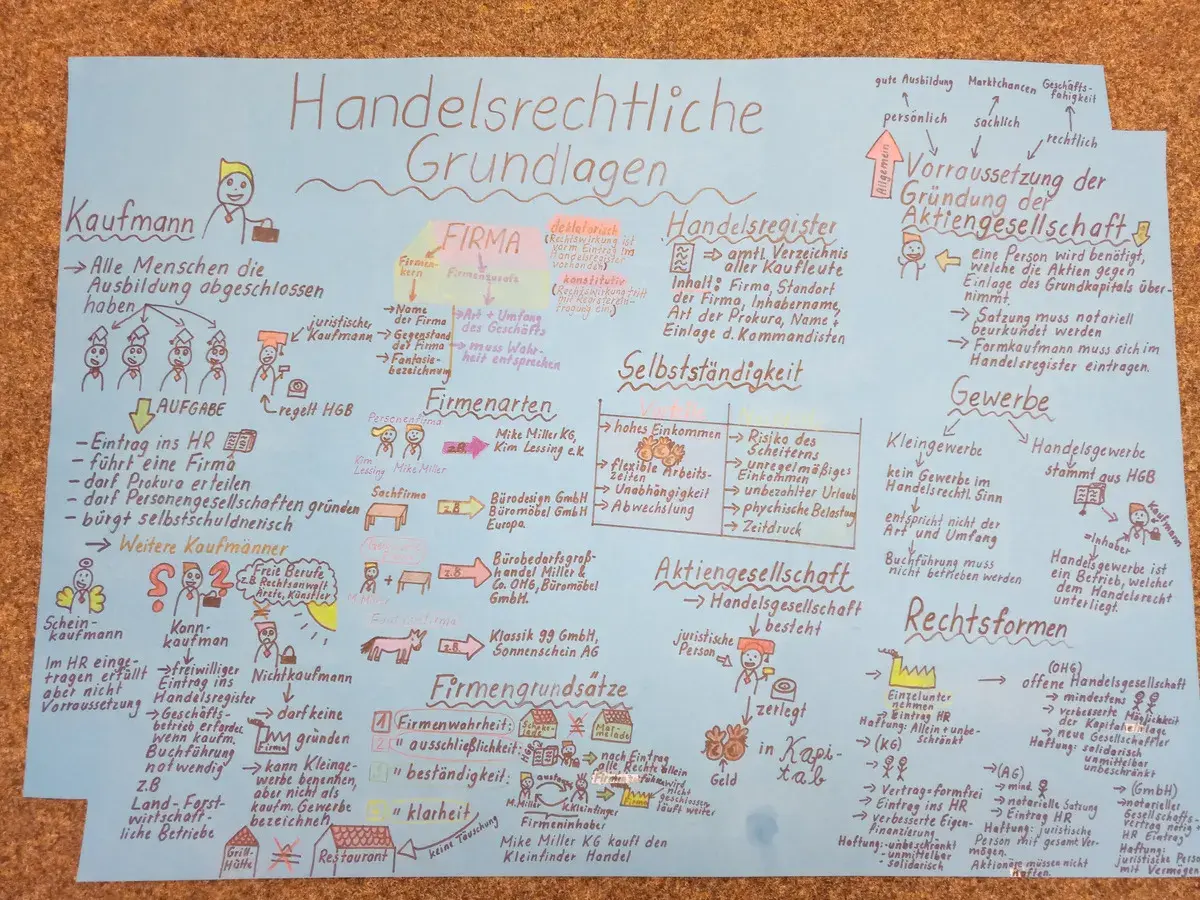 Handelsrechtliche
Grundlagen
Kaufmann
→ Alle Menschen die
Ausbildung abgeschlossen
haben
juristischer
Kaufmann
regelt HGB
AUFGABE
- Eintrag ins HR
- führt eine Firma
- darf Prokura erteilen
- darf Personengesellschaften gründen
- bürgt selbstschuldnerisch
→ Weitere Kaufmänner
Schein-
kaufmann
Im HR einge-
tragen erfüllt
aber nicht
Vorraussetzung
? ?
Kann-
kaufman
→ freiwilliger
Eintrag ins
Handelsregister
→ Geschäfts-
betrieb erfordert
wenn kaufm.
Buchführung
notwendig
z.B
Land- Forst-
wirtschaft-
liche Betriebe
Freie Berufe
z.B Rechtsanwalt
Ärzte, Künstler
Nichtkaufmann
→ darf keine
Firma gründen
→ kann Kleinge-
werbe benennen,
aber nicht als
kaufm. Gewerbe
bezeichnen
Grill-
Hütte
Restaurant
keine Täuschung
FIRMA
Firmen-
kern
Firmenzusatz
→ Name
der Firma
→ Gegenstand
der Firma
→ Fantasie-
bezeichnung
→ Art + Umfang
des Geschäfts
→ muss Wahr-
heit entsprechen
deklatorisch
(Rechtswirkung ist
vorm Eintrag im
Handelsregister
vorhanden)
konstitutiv
(Rechtswirkung tritt
mit Registerein-
tragung ein)
Firmenarten
Personenfirma
Kim
Lessing
Mike Miller
z.B.
Mike Miller KG,
Kim Lessing e.K
Sachfirma
z.B
Bürodesign GmbH
Büromöbel GmbH
Europa.
+
M. Miller
z.B
Bürobedarfsgroß-
handel Miller &
Co. OHG, Büromöbel
GmbH.
z.B
Klassik 99 GmbH,
Sonnenschein AG
Firmengrundsätze
1 Firmenwahrheit:
2 " ausschließlichkeit:
3 " beständigkeit:
" klarheit
Mar-
melade
HR
→ nach Eintrag
alle Rechte allein
Firma zu führen
M. Miller
K. Kleinfinger
Firmeninhaber
Firma
wird
nicht
geschlossen
läuft weiter
Mike Miller KG kauft den
Kleinfinder Handel
Handelsregister
⇒ amtl. Verzeichnis
aller Kaufleute
Inhalt: Firma, Standort
der Firma, Inhabername,
Art der Prokura, Name +
Einlage d. Kommandisten
Selbstständigkeit
Vorteile
→ hohes Einkommen
→ flexible Arbeits-
zeiten
→ Unabhängigkeit
→ Abwechslung
→ Risiko des
Scheiterns
→ unregelmäßiges
Einkommen
→ unbezahlter Urlaub
→ phychische Belastung
→ Zeitdruck
Aktiengesellschaft
→ Handelsgesellschaft
besteht
juristische
Person
zerlegt
Geld
in Kapi-
tab
gute Ausbildung
Marktchancen
Geschäfts-
fähigkeit
persönlich
sachlich
rechtlich
Allgemein
Vorraussetzung der
Gründung der
Aktiengesellschaft
eine Person wird benötigt,
welche die Aktien gegen
Einlage des Grundkapitals über-
nimmt.
→ Satzung muss notariell
beurkundet werden
→ Formkaufmann muss sich im
Handelsregister eintragen.
Gewerbe
Kleingewerbe
kein Gewerbe im
Handelsrechtl. Sinn
entspricht nicht der
Art und Umfang
Buchführung muss
nicht betrieben werden
Handelsgewerbe
stammt aus HGB
Kaufmann
=Inhaber
Handelsgewerbe ist
ein Betrieb, welcher
dem Handelsrecht
unterliegt.
Rechtsformen
→ Einzelunter
nehmen
→ Eintrag HR
Haftung: Allein + unbe-
schränkt
→ (KG)
→ Vertrag=formfrei
→ Eintrag ins HR
→ verbesserte Eigen-
finanzierung
Haftung:-unbeschränkt
- unmittelbar
- solidarisch
→ (OHG)
offene Handelsgesellschaft
→ mindestens
→ verbesserte Möglichkeit
der Kapitaleinlage
→ neue Gesellschafter
Haftung: solidarisch
unmittelbar
unbeschränkt
→ (AG)
→ mind.
→ notarielle Satzung
→ Eintrag HR
Haftung: juristische
Person mit gesamt Ver-
mögen.
Aktionäre müssen nicht
haften.
→ (GmbH)
→ notarieller
Gesellschafts-
vertrag nötig
HR Eintrag
Haftung:
juristische Person
mit Vermögen